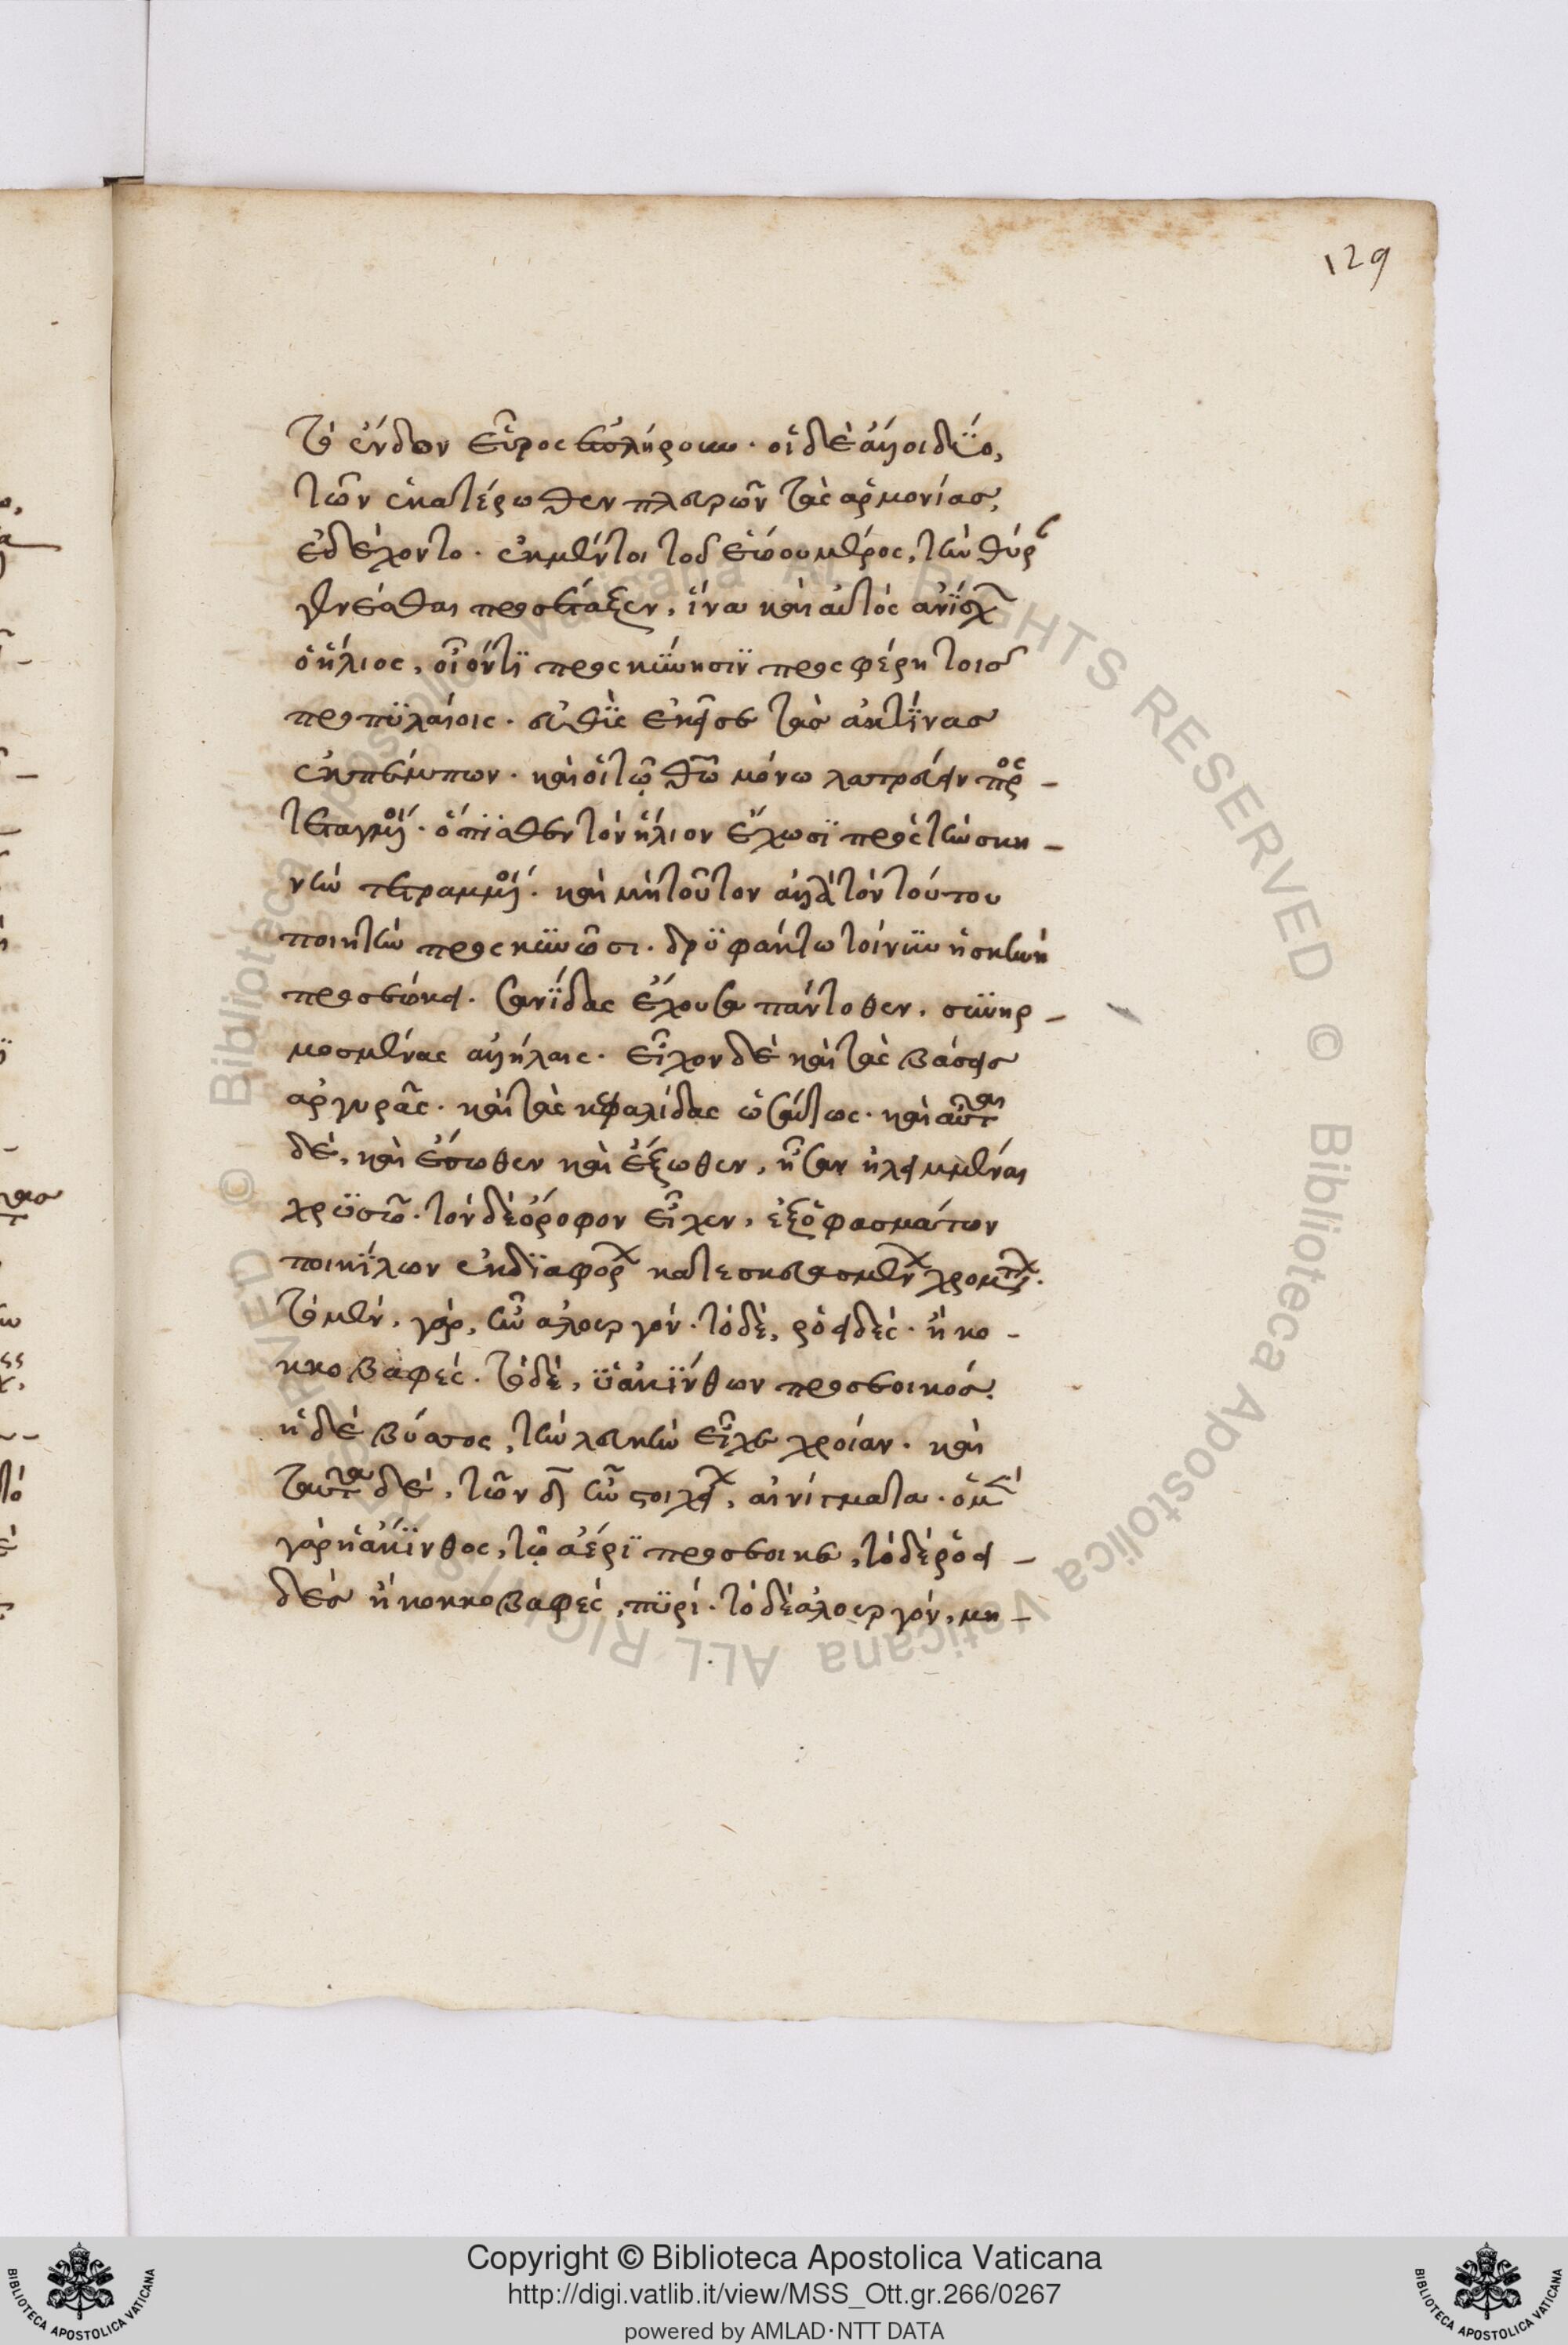 129
τὸ ἔνδον εὖρος ἐπλήρουν· οἱ δὲ ἄλλοι δύο,
τῶν ἑκατέρωθεν πλευρῶν τὰς ἁρμονίας,
ἐδέχοντο· ἐκ μέντοι τοῦ ἑῴου μέρους, τὴν θύραν
γενέσθαι προσέταξεν, ἵνα καὶ αὐτὸς ἀνίσχων
ὁ ἥλιος, οἱονεὶ προσκύνησιν προσφέρῃ τοῖς
προπυλαίοις· εὐθὺς ἐκεῖσε τὰς ἀκτῖνας
ἐκπέμπων· καὶ οἱ τῷ θεῷ μόνῳ λατρεύειν προσ-
τεταγμένοι· ὄπισθεν τὸν ἥλιον ἔχωσι πρὸς τὴν σκη-
νὴν τετραμμένοι· καὶ μὴ τοῦτον ἀλλὰ τὸν τούτου
ποιητὴν προσκυνῶσι· δρυφάκτῳ τοίνυν ἡ σκηνὴ
προσεῴκει· σανίδας ἔχουσα πάντοθεν, συνηρ-
μοσμένας ἀλλήλαις· εἶχον δὲ καὶ τὰς βάσεις
ἀργυρᾶς· καὶ τὰς κεφαλίδας ὡσαύτως· καὶ αὗται
δέ, καὶ ἔσωθεν καὶ ἔξωθεν, ἦσαν ἠλειμμέναι
χρυσῷ· τὸν δὲ ὄροφον εἶχεν, ἐξ ὑφασμάτων
ποικίλων ἐκ διαφόρων κατεσκευασμένων χρωμάτων·
τὸ μὲν, γὰρ, ἦν ἁλουργόν· τὸ δὲ, ῥοειδές· ἢ κο-
κκοβαφές· τὸ δὲ, ὑακίνθων προσεοικός·
ἡ δὲ βύσσος, τὴν λευκὴν εἶχε χροίαν· καὶ
ταῦτα δὲ, τῶν δ ἦν στοιχείων, αἰνίγματα· ὁ μὲν
γὰρ ὑάκινθος, τῷ ἀέρι προσέοικε, τὸ δὲ ῥοει-
δὲς ἢ κοκκοβαφές, πυρί· τὸ δὲ ἁλουργόν, μη-
Copyright © Biblioteca Apostolica Vaticana
http://digi.vatlib.it/view/MSS_Ott.gr.266/0267
powered by AMLAD·NTT DATA